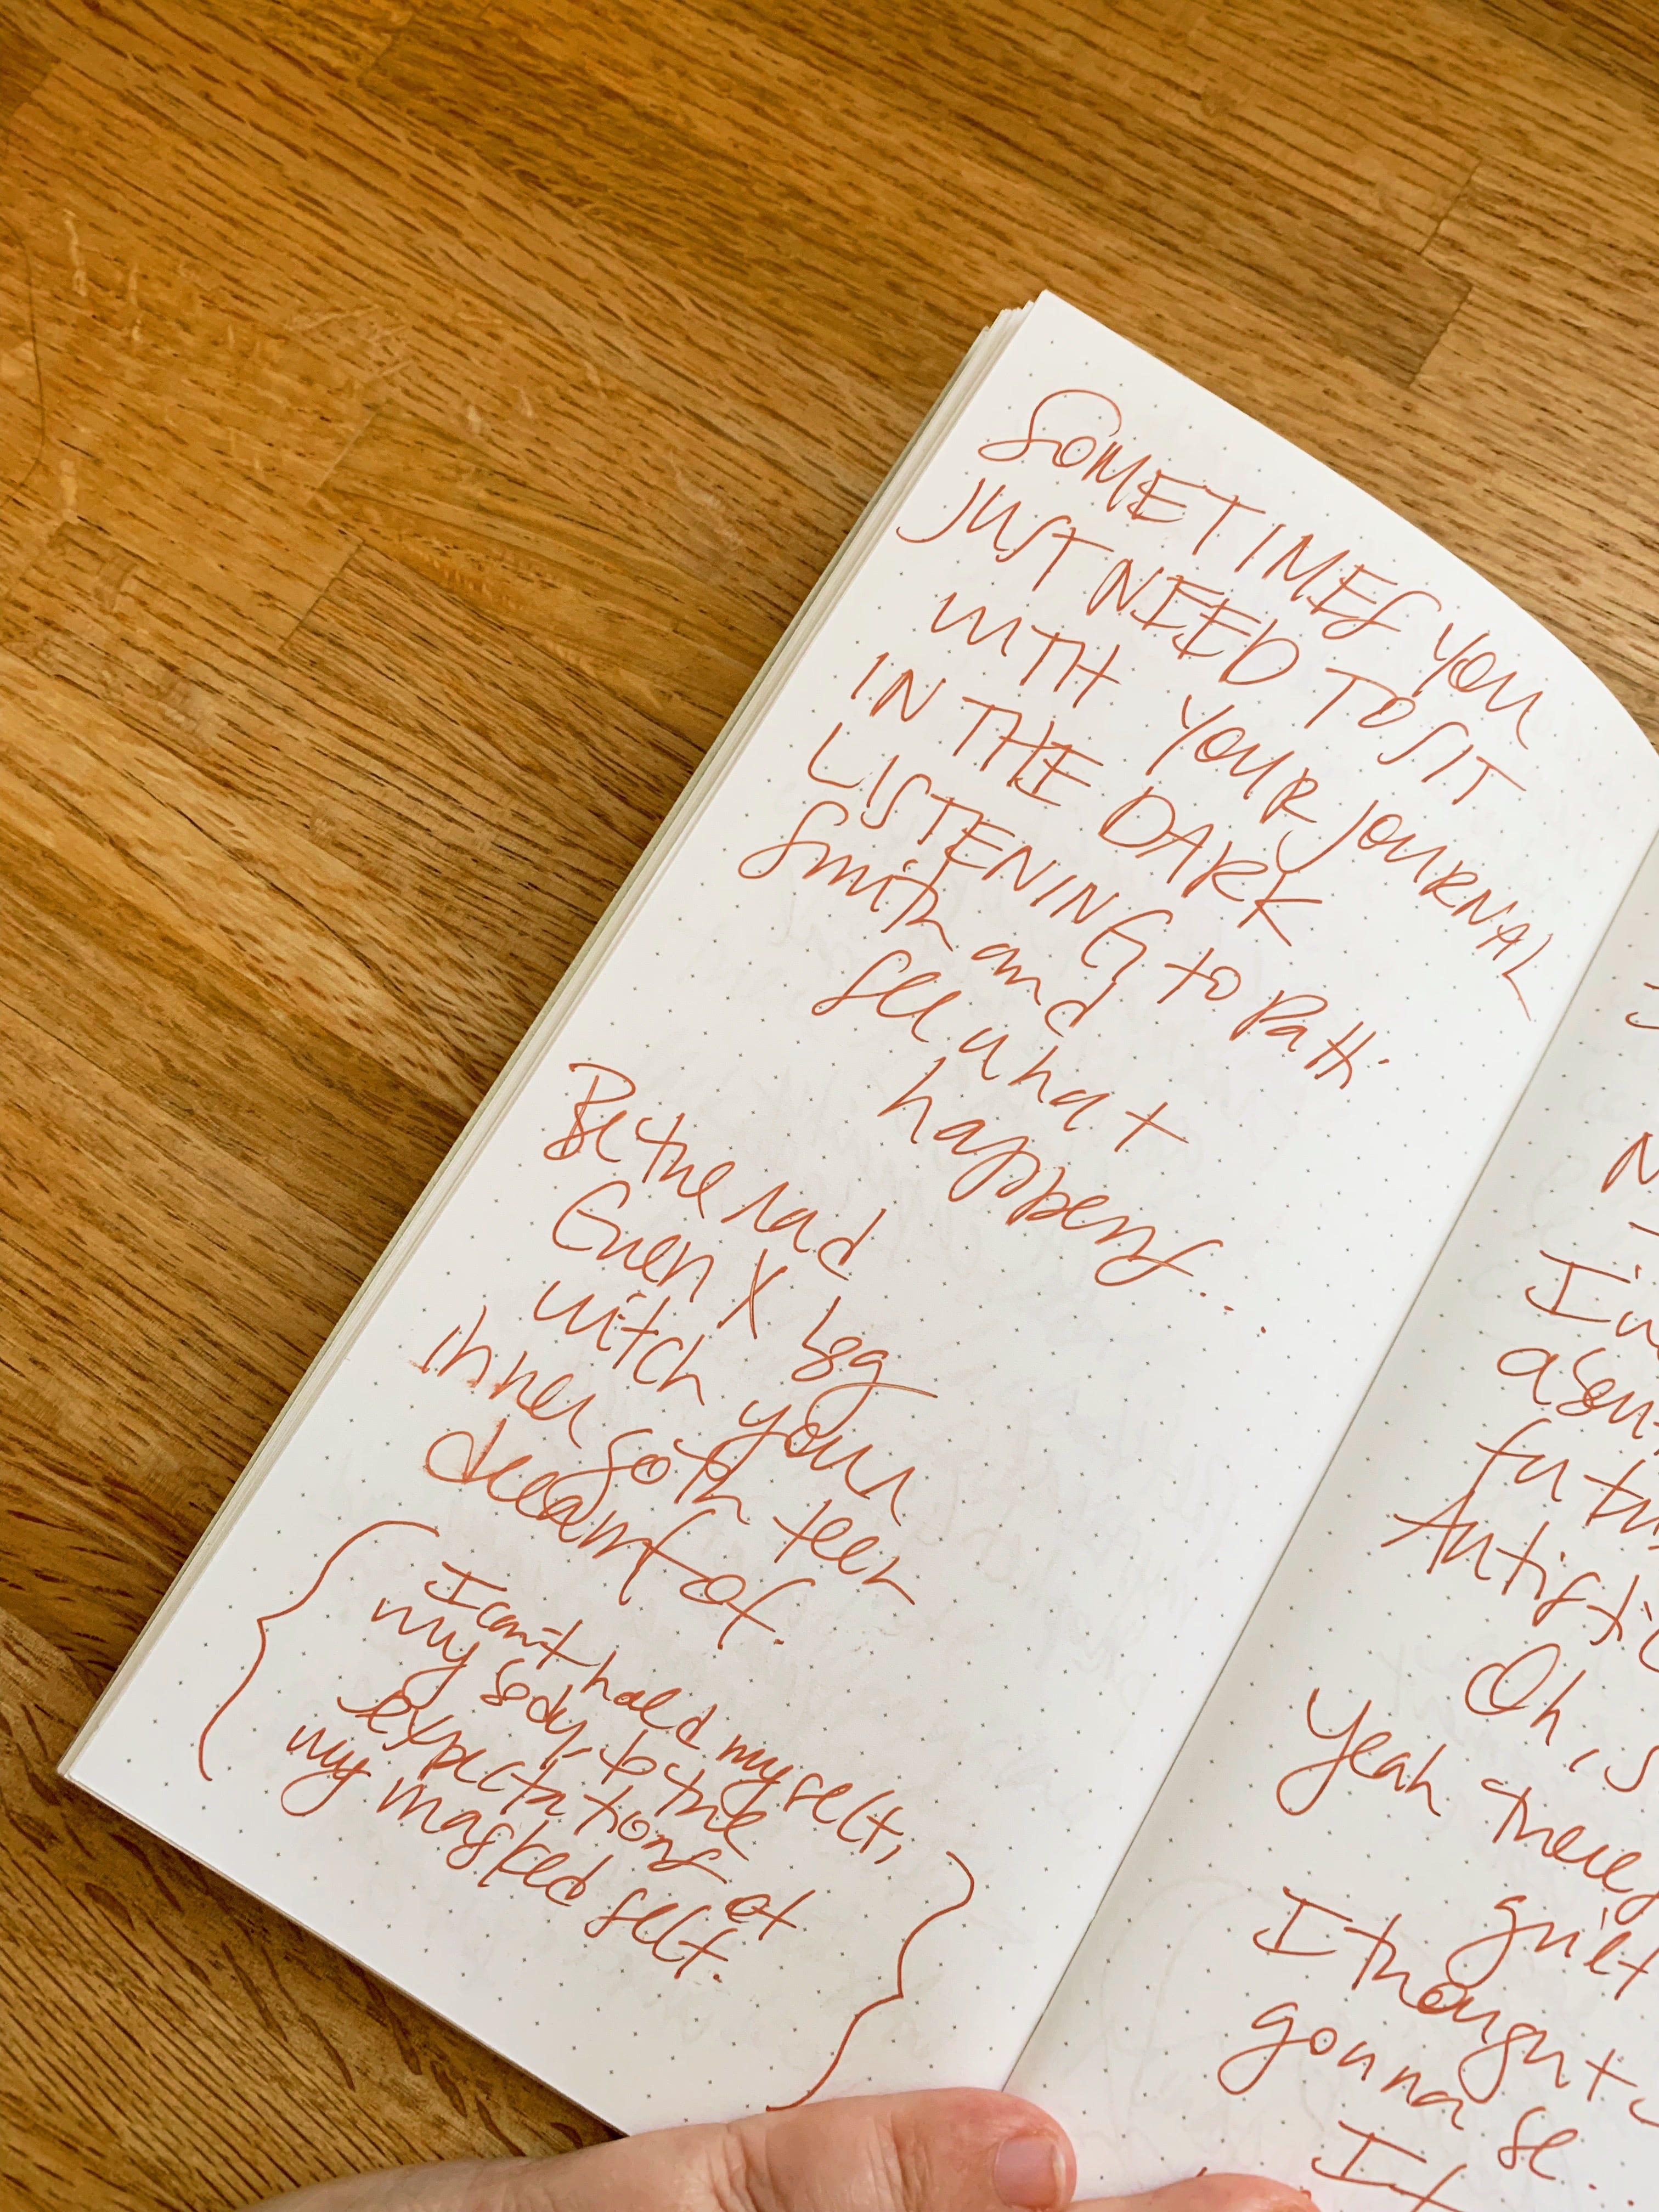 SOMETIMES YOU
JUST NEED TO SIT
WITH YOUR JOURNAL
IN THE DARK
LISTENING to Patti
Smith and
see what
happens...
Be the rad
Gen X
witch your
inner goth teen
dreamt of.
I can't hold myself,
my body, to the
expectations of
my masked self.
N
I'v
a
fu
Autisti
Oh, is
Yeah there
guilt
I thought
gonna be..
If